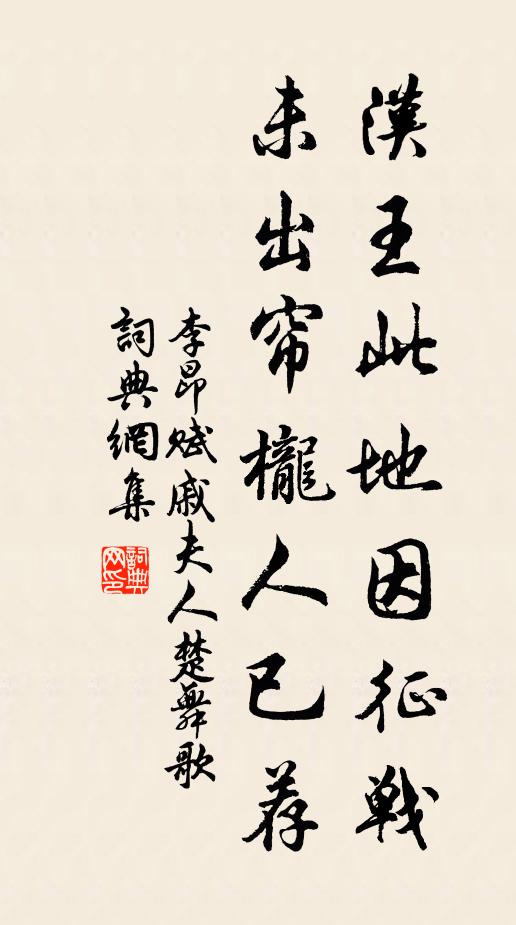 漢王此地因征戦
未出帘櫳人已荐
李昂賦戚夫人楚舞歌
詞典網集
詞典
网印